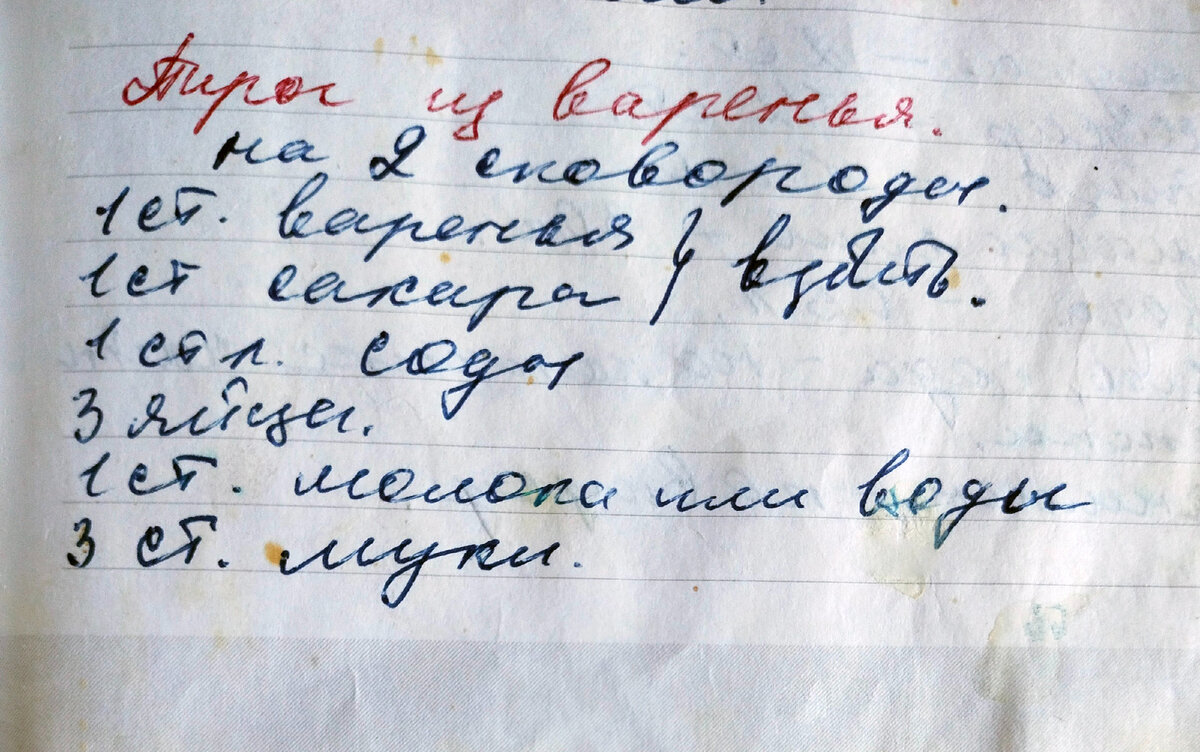 Пирог из варенья.
на 2 сковороды.
1 ст. варенья } взбить.
1 ст сахара
1 ст л. соды
3 яйца.
1 ст. молока или воды
3 ст. муки.